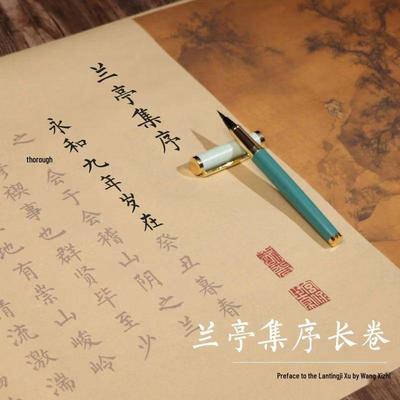 兰亭集序
永和九年岁在癸丑暮春
之
会于会稽山阴之兰
禊事也群贤毕至少
地有崇山峻岭
清流激湍
thorough
兰亭集序长卷
Preface to the Lantingji Xu by Wang Xizhi